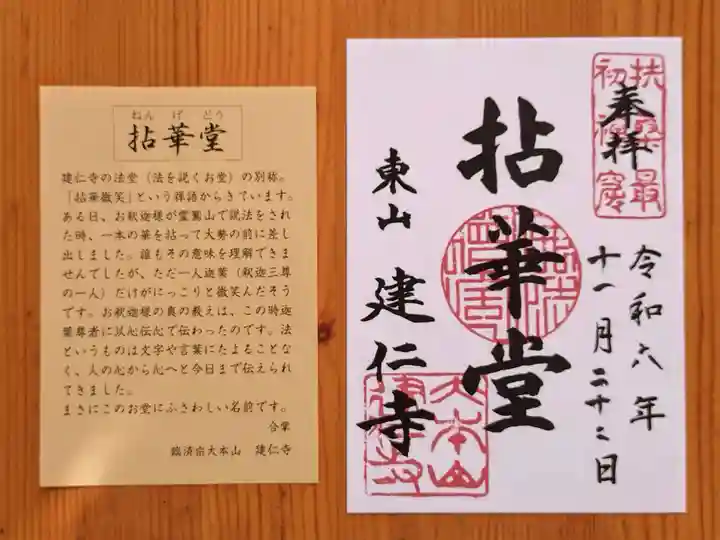 ねんげどう
拈華堂
建仁寺の法堂（法を説くお堂）の別称。
「拈華微笑」という禅語からきています。
ある日、お釈迦様が霊鷲山で説法をされ
た時、一本の華を拈って大勢の前に差し
出しました。誰もその意味を理解できま
せんでしたが、ただ一人迦葉（釈迦三尊
の一人）だけがにっこりと微笑んだそう
です。お釈迦様の真の教えは、この時迦
葉尊者に以心伝心で伝わったのです。法
というものは文字や言葉にたよることな
く、人の心から心へと今日まで伝えられ
てきました。
まさにこのお堂にふさわしい名前です。
合掌
臨済宗大本山　建仁寺
扶桑最
初禅窟
奉拝
令和六年
十一月二十二日
拈華堂
東山 建仁寺
大本山
建仁寺